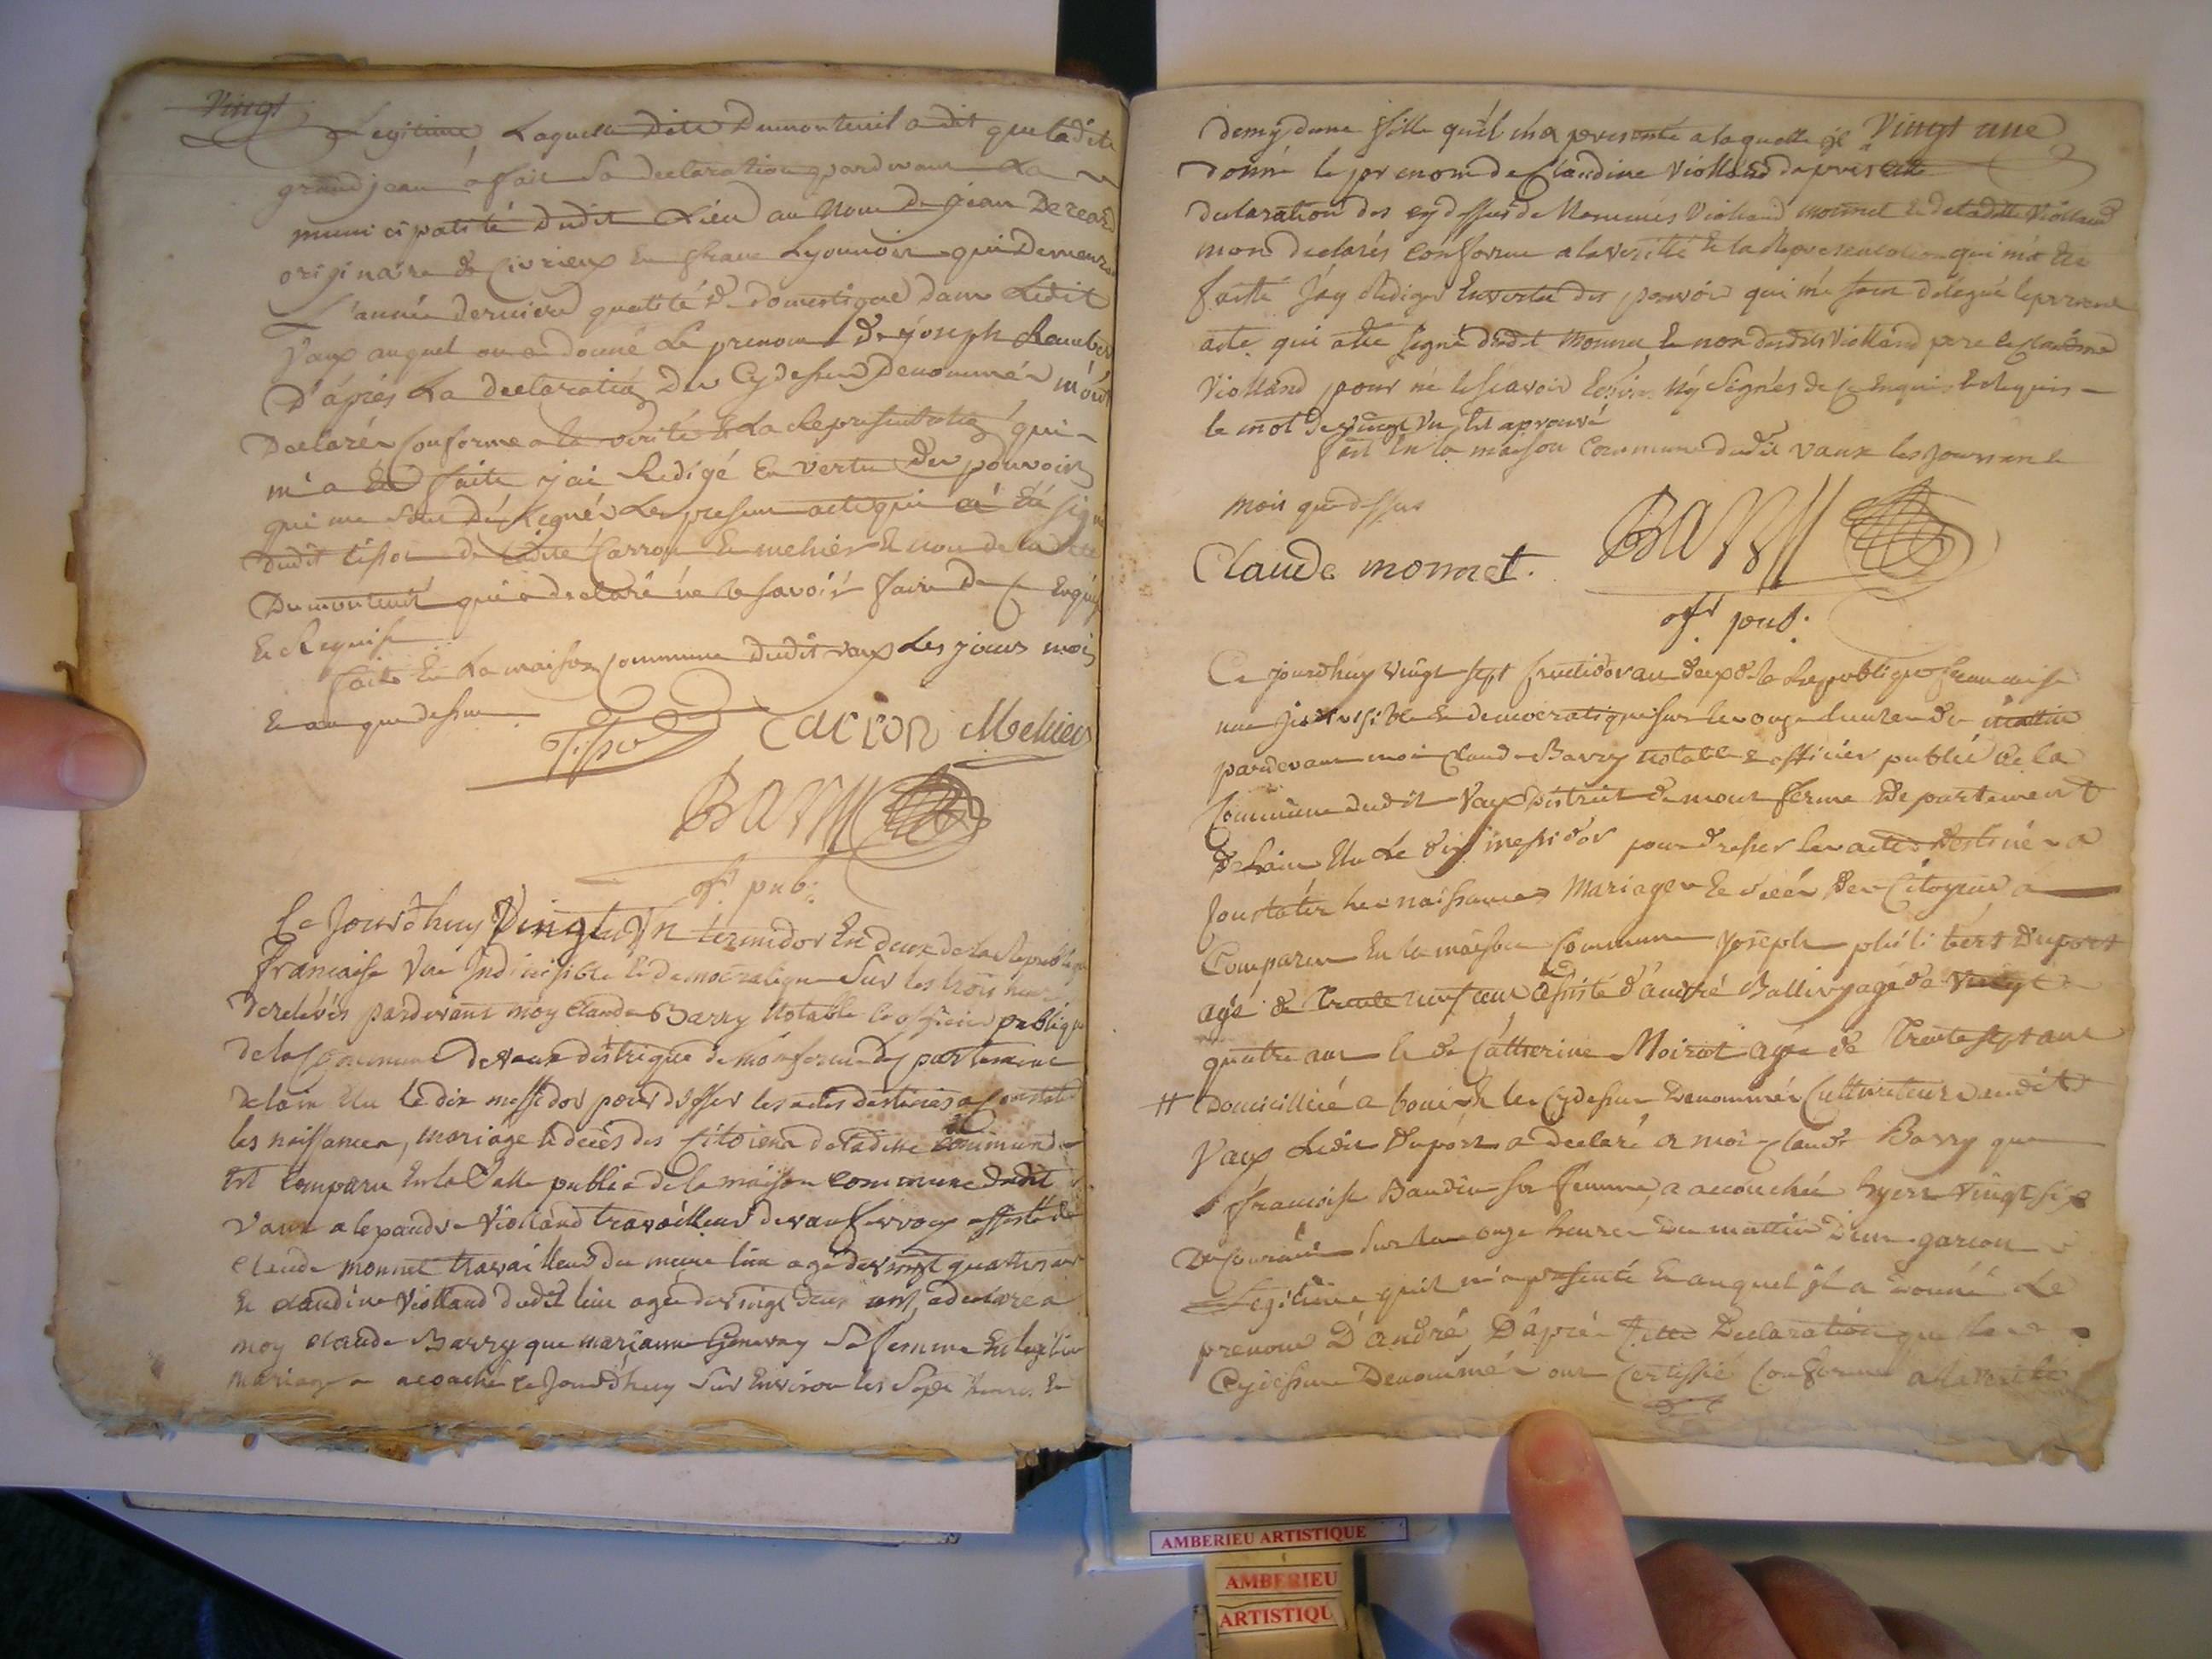 Vingt
Legitime, Laquelle Dite Dumonteuil a dit que ladite
grandjean a fait Sa declaration pardevant La
municipalité Dudit Lieu au Nom De jean
originaire de Civrieux en franc Lyonnois qui Demeuroit
L'année derniere qualité de domestique dans Ledit
Vaux auquel on a donné Le prenom de joseph
D'après La declaration Des Cydessus Denommés m'ont
Declarés Conforme a la verité et La Representation qui
m'a été faite j'ai Redigé En vertu Des pouvoirs
qui me sont Le present acte qui a été signé
dudit tissot de ladite Carron Et mehier Et non de la dite
Dumonteuil qui a declaré ne le savoir faire De Ce Enquis
Et Requise
faite En La maison commune dudit vaux Les jours mois
Et an que dessus
Tissot Carron Mehier
Barry
of. pub:
Ce Jourd'huy Vingt Un termidor En deux de la Republique
francaise Une Indivisible Et Democratique Sur les trois heures
de relevés pardevant moy Claude Barry Notable Et officier publique
de la Commune de Vaux distrique de monferme departement
de lain Elu le dix messidor pour dresser les actes destinés a Constater
les naissances, mariage Et decès des Citoiens de ladite Commune
Est Comparu En la Salle public de la maison commune dudit
vaux Violland travailleur de vaux assisté de
Claude monnet travailleur du meme lieu agé de vingt quattre ans
Et Claudine Violland dudit lieu agée de vingt deux ans, a declaré a
moy Claude Barry que marianne Genevay Sa femme En legitime
mariage a acouché ce Jourd'huy Sur Environ les Sept heures Et
Vingt une
demy dune fille quil m'a presenté a laquelle il a
donné le prenom de Claudine Violland dapres cette
declaration des cy dessus de Nommés Violland monnet Et de ladite Violland
mon declarés conforme a la verité Et la Representation qui m'a Ete
faitte J'ay Rediger En vertu des pouvoir qui me sont delegué le present
acte qui a Ete signé dudit Monnet Et non dudit Violland pere Et Claudine
Violland pour ne le scavoir Ecrire Ny Signés de ce Enquis Et Requis
le mot de vingt un Est aprouvé
fait En la maison Commune dudit vaux les Jour an Et
mois que dessus
Claude monnet. Barry
of. pub:
Ce jourdhuy vingt sept fructidor an deux de la Republique francaise
une Indivisible Et democratique sur les onze heures du mattin
pardevant moi Claude Barry notable Et officier public de la
Commune dudit Vaux District de mont ferme Departement
de Lain Elu Le dix messidor pour dresser les actes destinés a
Constater les naissances Mariages Et decés Des Citoyens a
Comparu En la maison Commune joseph philibert Duport
agé de trente neuf ans assisté d'andré Ballivy agé de vingt
quatre ans Et de Catherine Moirat agée de trente sept ans
# Domicilliée a Les Cydessus Denommés Cultivateurs dudit
Vaux Ledit Duport a declaré a moi Claude Barry que
francoise Baudin sa femme, a accouchée hyere vingt six
Du Courant Sur les onze heures du mattin D'un garcon
Legitime quil m'a presenté Et auquel il a donné Le
prenom D'andré, D'après Cette Declaration que les
Cydessus Denommés ont Certiffié Conforme a la verité
AMBERIEU ARTISTIQUE
AMBERIEU
ARTISTIQU